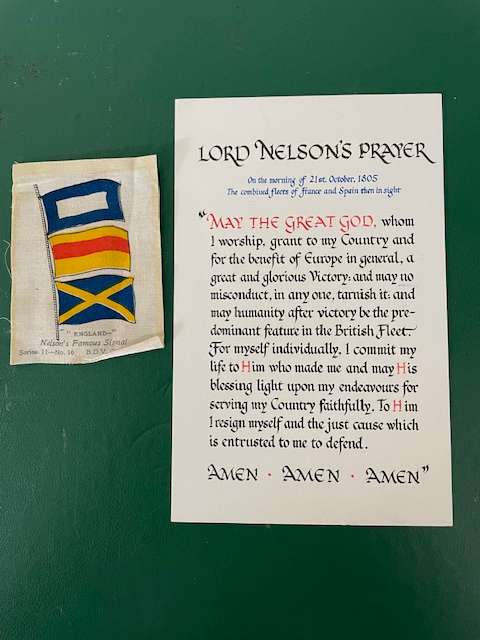 LORD NELSON'S PRAYER
On the morning of 21st. October, 1805
The combined fleets of France and Spain then in sight
"MAY THE GREAT GOD, whom
I worship, grant to my Country and
for the benefit of Europe in general, a
great and glorious Victory: and may no
misconduct, in any one, tarnish it: and
may humanity after victory be the pre-
dominant feature in the British Fleet
For myself individually, I commit my
life to Him who made me and may His
blessing light upon my endeavours for
serving my Country faithfully. To Him
I resign myself and the just cause which
is entrusted to me to defend.
AMEN · AMEN · AMEN"
"ENGLAND—"
Nelson's Famous Signal
Series 11—No. 16 B.D.V.